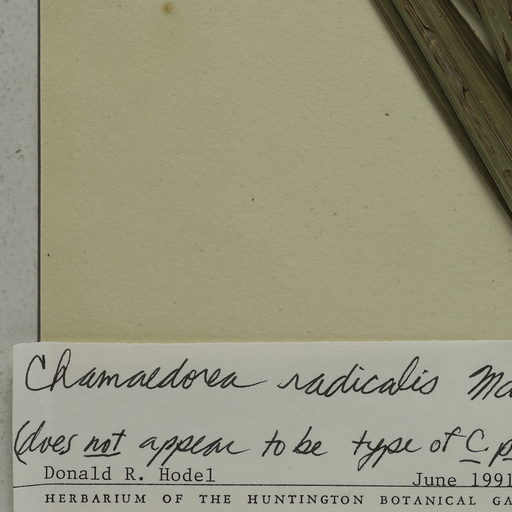 Chamaedorea radicalis Ma
(does not appear to be type of C. p
Donald R. Hodel June 1991
HERBARIUM OF THE HUNTINGTON BOTANICAL GA